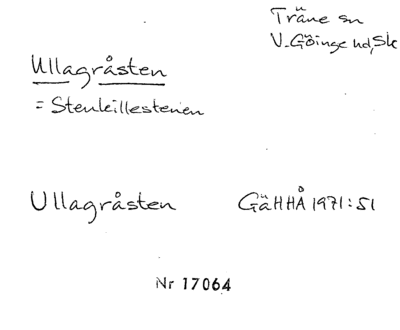 Träne sn
V. Göinge hd, Sk
Ullagråsten
= Stenkillestenen
Ullagråsten GäHHÅ 1971:51
Nr 17064